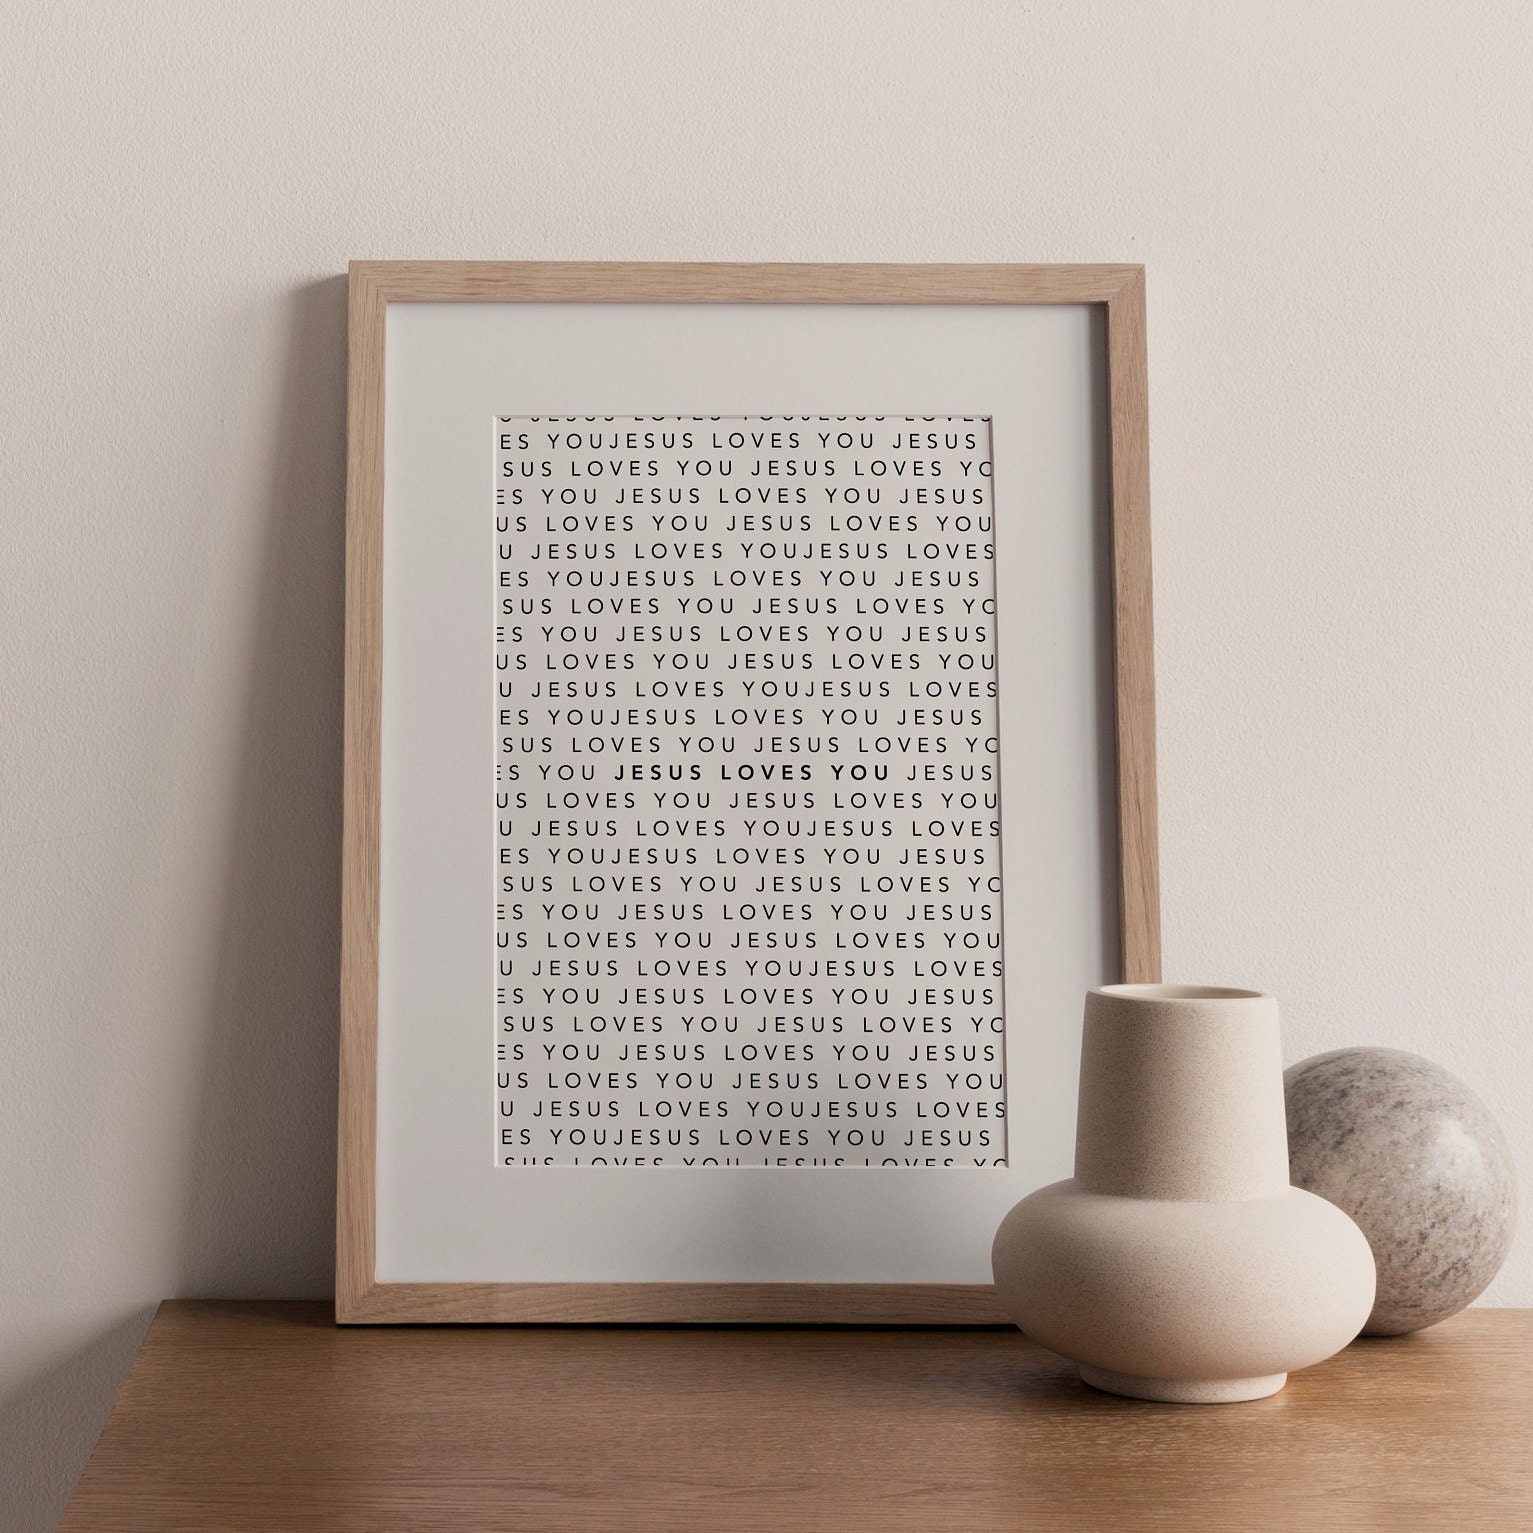 U JESUS LOVES YOUJESUS LOVES
ES YOUJESUS LOVES YOU JESUS
SUS LOVES YOU JESUS LOVES YO
ES YOU JESUS LOVES YOU JESUS
US LOVES YOU JESUS LOVES YOU
U JESUS LOVES YOUJESUS LOVES
ES YOUJESUS LOVES YOU JESUS
SUS LOVES YOU JESUS LOVES YO
ES YOU JESUS LOVES YOU JESUS
US LOVES YOU JESUS LOVES YOU
U JESUS LOVES YOUJESUS LOVES
ES YOUJESUS LOVES YOU JESUS
SUS LOVES YOU JESUS LOVES YO
ES YOU JESUS LOVES YOU JESUS
US LOVES YOU JESUS LOVES YOU
U JESUS LOVES YOUJESUS LOVES
ES YOUJESUS LOVES YOU JESUS
SUS LOVES YOU JESUS LOVES YO
ES YOU JESUS LOVES YOU JESUS
US LOVES YOU JESUS LOVES YOU
U JESUS LOVES YOUJESUS LOVES
ES YOU JESUS LOVES YOU JESUS
SUS LOVES YOU JESUS LOVES YO
ES YOU JESUS LOVES YOU JESUS
US LOVES YOU JESUS LOVES YOU
U JESUS LOVES YOUJESUS LOVES
ES YOUJESUS LOVES YOU JESUS
SUS LOVES YOU JESUS LOVES YO